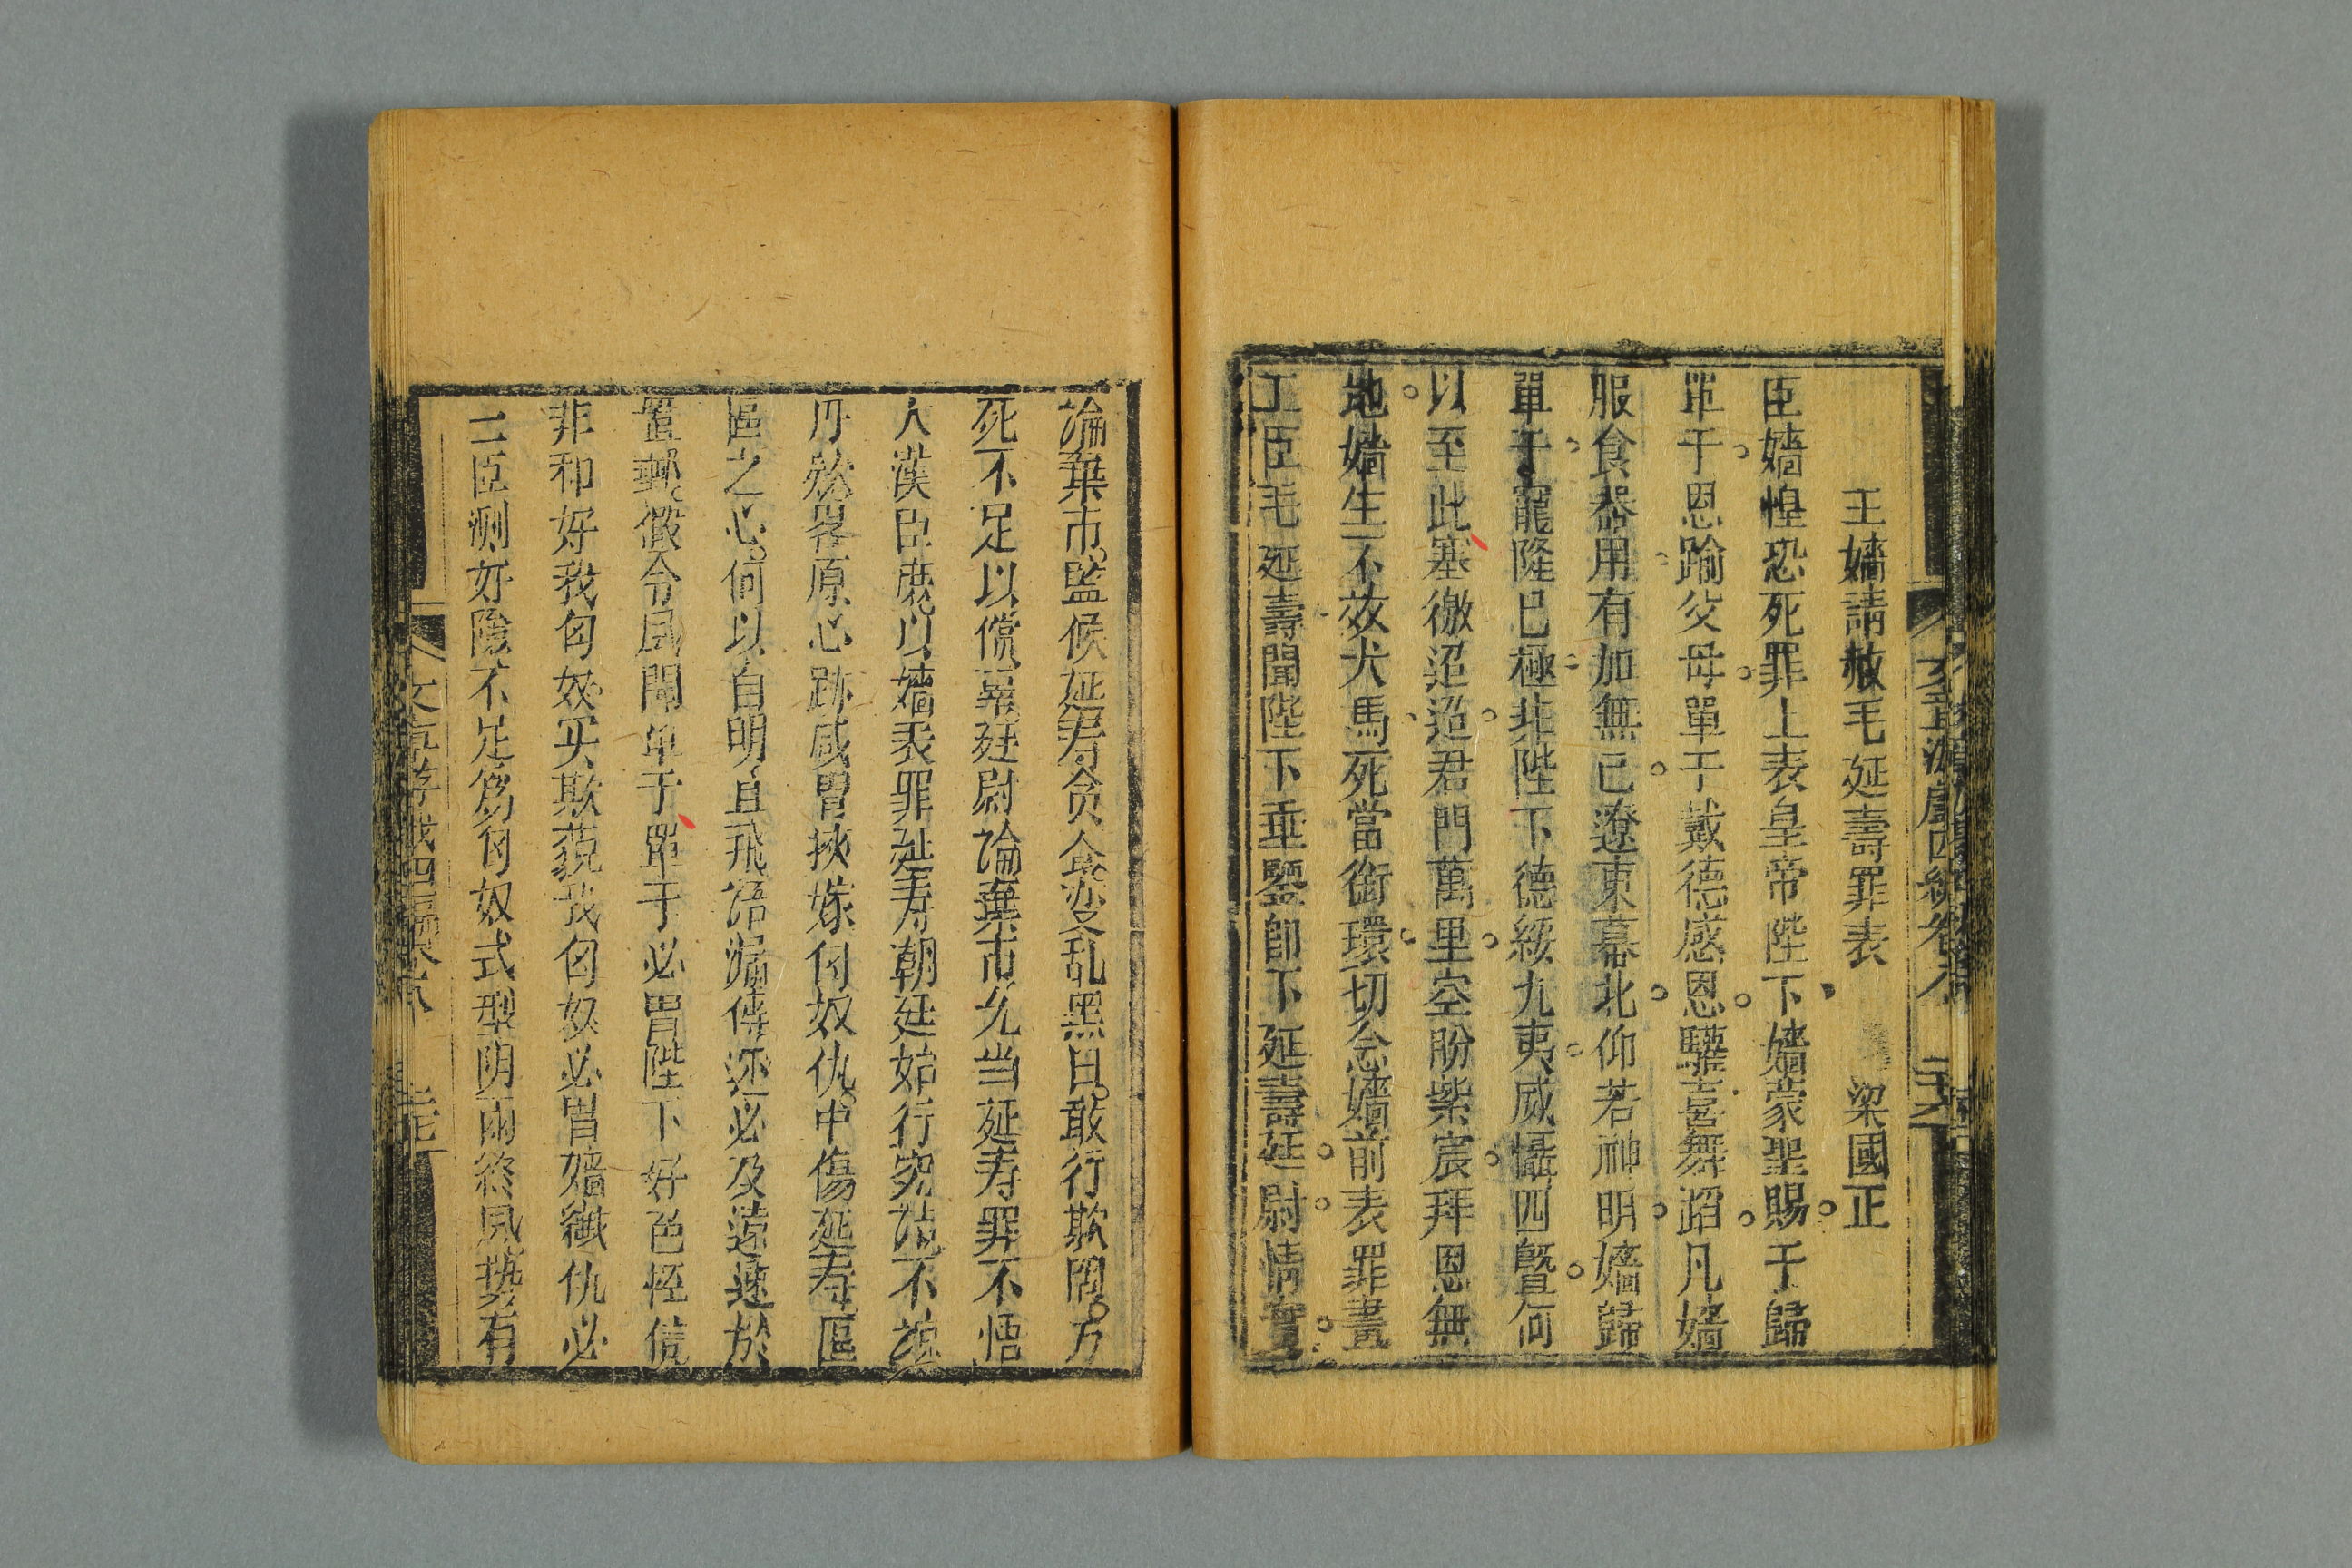 王嬙請赦毛延壽罪表 梁國正
臣嬙惶恐死罪上表皇帝陛下嬙蒙聖賜于歸
單于恩踰父母單于戴德感恩驩喜舞蹈凡嬙
服食器用有加無已遼東幕北仰若神明嬙歸
單于寵隆已極非陛下德綏九夷威懾四曁何
以至此塞徼迢迢君門萬里空盼紫宸拜恩無
地嬙生不效犬馬死當銜環切念嬙前表罪畫
工臣毛延壽聞陛下垂鑒卽下延壽廷尉情實
論棄市監候延寿贪금变乱黑白敢行欺罔万
死不足以償辜廷尉論棄市允当延寿罪不悟
人漢臣庶以嬙表罪延寿朝廷始行究詰不諒
丹㷼畧原心跡咸胃挾嫁匈奴仇中傷延寿區
區之心何以自明直飛語漏傳还必及遠速於
置郵儻令風聞单于單于必胃陛下好色輕信
非和好我匈奴实欺藐我匈奴必胃嬙孅仇必
二臣測好陰不足為匈奴式型阴雨終風势有